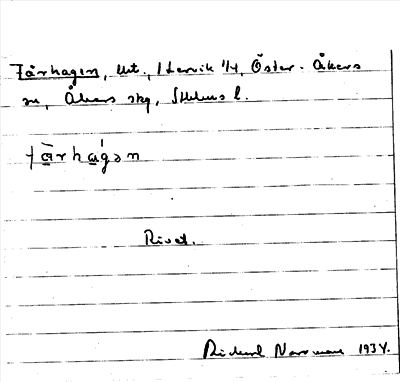 Fårhagen, lht., /Lervik 1/4, Öster-Åkers
sn, Åkers skg, Sthlms l.
fà̀rha̍gən
Rivet.
Rickard Norrman 1934.